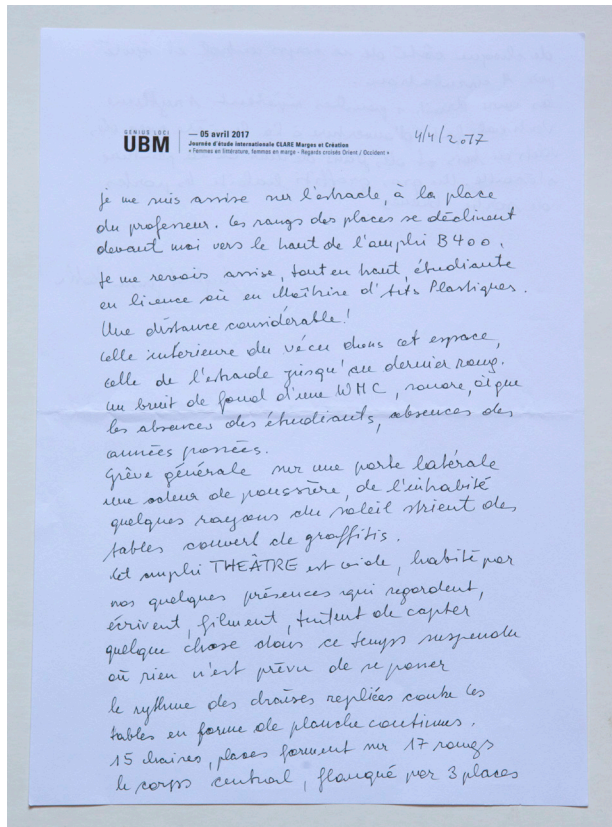 GENIUS LOCI
UBM
— 05 avril 2017
Journée d'étude internationale CLARE Marges et Création
« Femmes en littérature, femmes en marge - Regards croisés Orient / Occident »
4/4/2017
je me suis assise sur l'estrade, à la place
du professeur. les rangs des places se déclinent
devant moi vers le haut de l'amphi B400.
Je me revois assise, tout en haut, étudiante
en licence où en Maîtrise d'Arts Plastiques.
Une distance considérable !
celle intérieure du vécu dans cet espace,
celle de l'estrade jusqu'au dernier rang.
un bruit de fond d'une VMC, sonore, aigue
les absences des étudiants, absences des
années passées.
Grève générale sur une porte latérale
une odeur de poussière, de l'inhabité
quelques rayons du soleil strient des
tables couvert de graffitis.
Cet amphi THEÂTRE est vide, habité par
nos quelques présences qui regardent,
écrivent, filment, tentent de capter
quelque chose dans ce temps suspendu
où rien n'est prévu de se passer
le rythme des chaises repliées contre les
tables en forme de planche continues.
15 chaires, places forment sur 17 rangs
le corps central, flanqué par 3 places